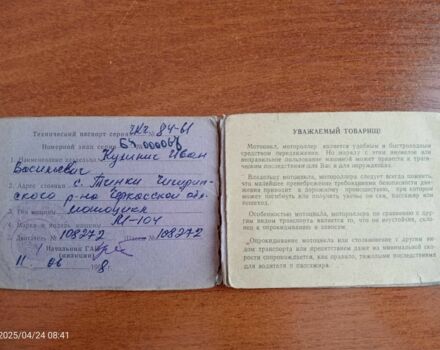 Технический паспорт серии ЧКЧ № 84-61
Номерной знак серии
1. Наименование владельца Кулинич Иван
Васильевич
2. Адрес стоянки с. Тиньки Чигирин-
ского р-на Черкасской обл
3. Тип машины мотоцикл
4. Марка и модель машины М-104
Двигатель № 108272 Шасси № 108272
Начальник ГАИ
(милиции)
УВАЖАЕМЫЙ ТОВАРИЩ!
Мотоцикл, мотороллер является удобным и быстроходным
средством передвижения. Но наряду с этим неумелое или
неправильное пользование машиной может привести к траги-
ческим последствиям для Вас и для окружающих.
Владельцу мотоцикла, мотороллера следует всегда помнить,
что малейшее пренебрежение требованиями безопасности дви-
жения приводит к дорожному происшествию, при котором
может погибнуть или получить увечье он сам, пассажир или
пешеход.
Особенностью мотоцикла, мотороллера по сравнению с дру-
гим видом транспорта является то, что он неустойчив, скло-
нен к опрокидыванию и заносам.
Опрокидывание мотоцикла или столкновение с другим ви-
дом транспорта или препятствием даже на минимальной ско-
рости сопровождается, как правило, тяжелыми последствиями
для водителя и пассажира.
2025/04/24 08:41